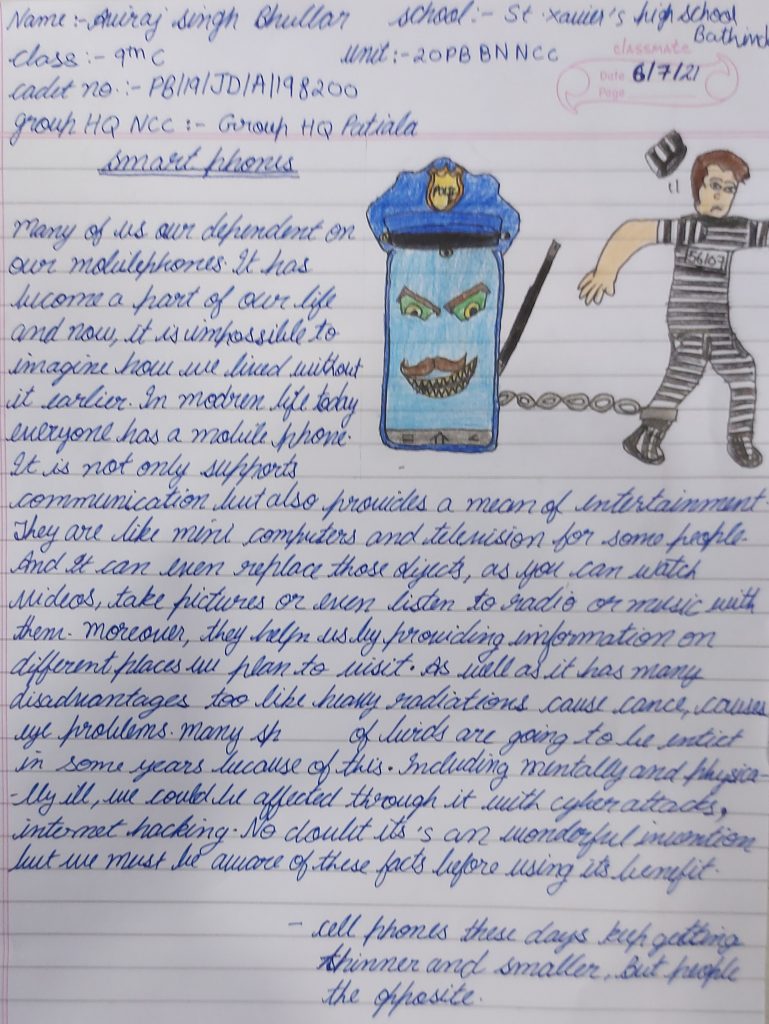 Name:- Aviraj singh Bhullar school:- St. xavier's high school
Bathind
class:- 9th C unit:- 20PB BN NCC
classmate
Date 6/7/21
Page
cadet no.:- PB/19/JD/A/198200
group HQ NCC :- Group HQ Patiala
smart phones
POLICE
56107
many of us our dependent on
our mobilephones. It has
become a part of our life
and now, it is impossible to
imagine how we lived without
it earlier. In modren life today
everyone has a mobile phone.
It is not only supports
communication but also provides a mean of entertainment.
They are like mini computers and television for some people.
And It can even replace those objects, as you can watch
videos, take pictures or even listen to radio or music with
them. moreover, they help us by providing information on
different places we plan to visit. As well as it has many
disadvantages too like heavy radiations cause cance, causes
eye problems. many sp of birds are going to be entict
in some years because of this. Including mentally and physica-
-lly ill, we could be affected through it with cyber attacks,
internet hacking. No doubt its's an wonderful invention
but we must be aware of these facts before using its benefit.
- cell phones these days keep getting
thinner and smaller, but people
the opposite.